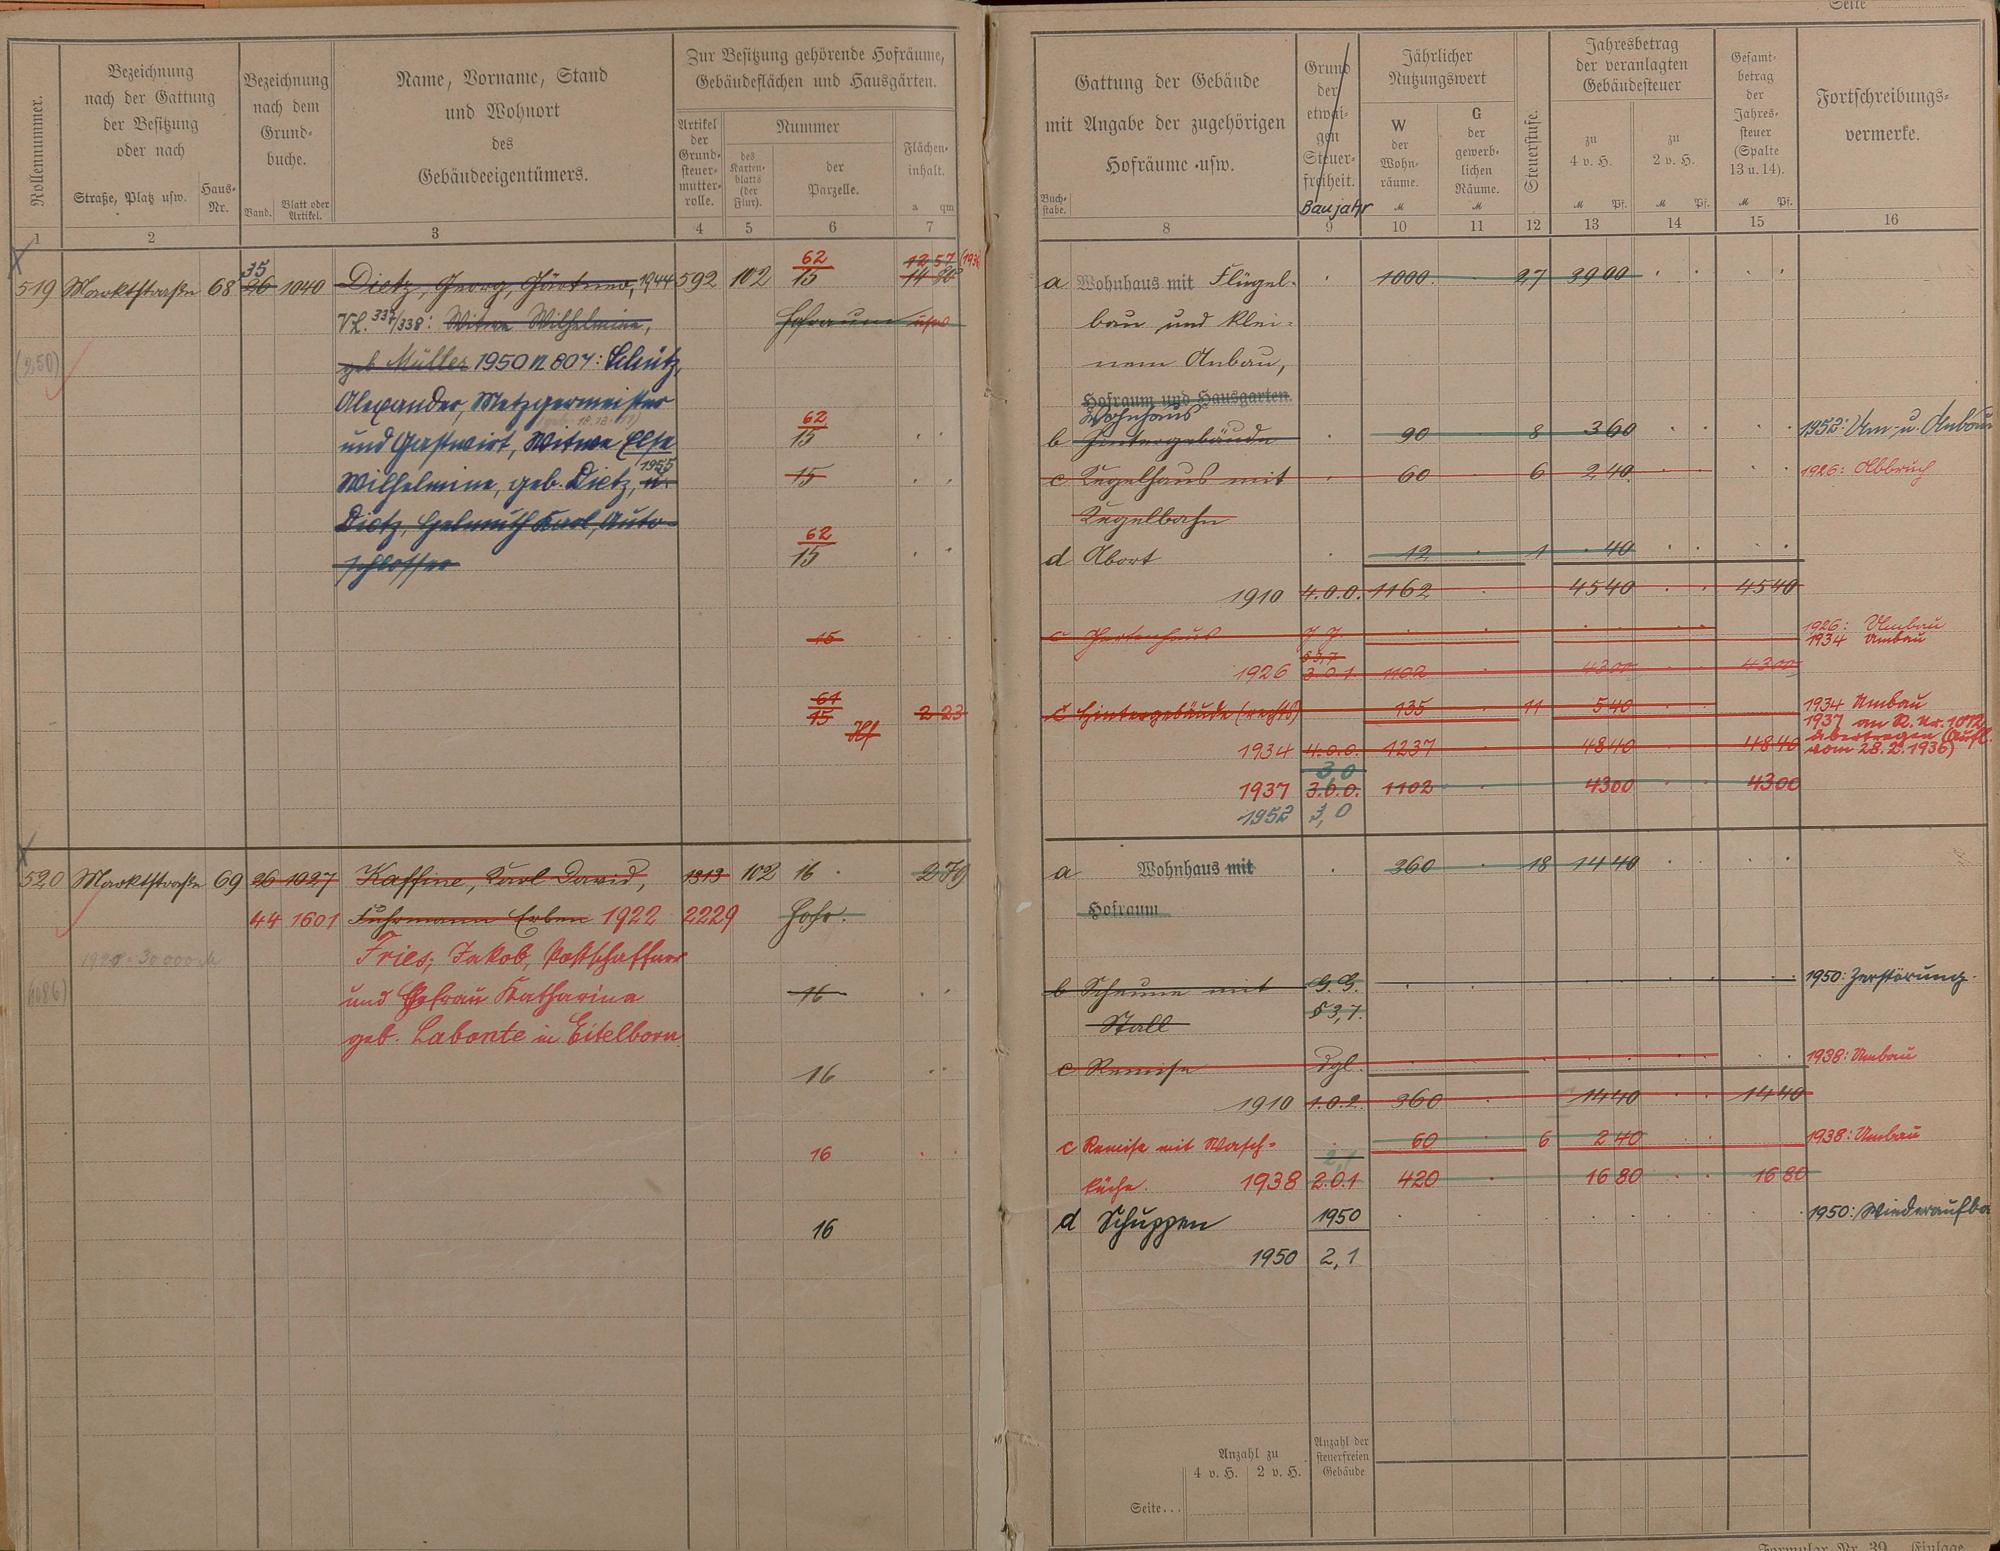 Seite
Rollennummer.
Bezeichnung
nach der Gattung
der Besitzung
oder nach
Straße, Platz usw.
Haus-
Nr.
Bezeichnung
nach dem
Grund-
buche.
Band.
Blatt oder
Artikel.
Name, Vorname, Stand
und Wohnort
des
Gebäudeeigentümers.
Zur Besitzung gehörende Hofräume,
Gebäudeflächen und Hausgärten.
Artikel
der
Grund-
steuer-
mutter-
rolle.
Nummer
des
Karten-
blatts
(der
Flur).
der
Parzelle.
Flächen-
inhalt.
a qm
1 2 3 4 5 6 7
519 Marktstraße 68 26 1040 Dietz, Georg, Gärtner, 1944 592 102 62 12 57 (1936)
35 15 14 80
Vl. 337/338: Witwe Wilhelmine, Hofraum usw
(250)
geb Müller 1950 N 804: Schütz,
Alexander, Metzgermeister
62
und Gastwirt, Witwe Else 15
1955
Wilhelmine, geb. Dietz, u. 15
Dietz, Helmuth Karl, Auto-
62
schlosser 15
15
61
15 Hf 2 23
520 Marktstraße 69 26 1027 Kaffine, Karl David, 1313 102 16 2 79
44 1601 Fuhrmann Erben 1922 2229 Hofr.
Fries, Jakob, Postschaffner
und Ehefrau Katharina 16
geb. Labonte in Eitelborn
16
16
16
Gattung der Gebäude
mit Angabe der zugehörigen
Hofräume usw.
Buch-
stabe.
Grund
der
etwai-
gen
Steuer-
freiheit.
Baujahr
Jährlicher
Nutzungswert
W
der
Wohn-
räume.
M
G
der
gewerb-
lichen
Räume.
M
Steuerstufe.
Jahresbetrag
der veranlagten
Gebäudesteuer
zu
4 v. H.
M Pf.
zu
2 v. H.
M Pf.
Gesamt-
betrag
der
Jahres-
steuer
(Spalte
13 u. 14).
M Pf.
Fortschreibungs-
vermerke.
8 9 10 11 12 13 14 15 16
a Wohnhaus mit Flügel- 1000 27 39 00
bau und klei-
nem Anbau,
Hofraum und Hausgarten
Wohnhaus
b Hintergebäude 90 8 3 60 1952: Um- u. Anbau
c Kegelhaus mit 60 6 2 40 1926: Abbruch
Kegelbahn
d Abort 12 1 40
1910 4.0.0. 1162 45 40 45 40
c Gartenhaus 1926: Umbau
1934 Umbau
§3,7
1926 3.0.1 1102 43 00 43 00
c Hintergebäude (rechts) 135 11 5 40 1934 Umbau
1937 an R. Nr. 1072
übertragen (Aufl.
vom 28.2.1936)
1934 4.0.0. 1237 48 40 48 40
3,0
1937 3.0.0. 1102 43 00 43 00
1952 3,0
a Wohnhaus mit 360 18 14 40
Hofraum
b Scheune mit G. G. 1950: Zerstörung.
Stall §3,7.
c Remise dgl. 1938: Umbau
1910 1.0.2. 360 14 40 14 40
c Remise mit Wasch- 60 6 2 40 1938: Umbau
2,1
küche. 1938 2.0.1 420 16 80 16 80
d Schuppen 1950 1950: Wiederaufba
1950 2,1
Anzahl zu
4 v. H. 2 v. H.
Anzahl der
steuerfreien
Gebäude
Seite...
Formular Nr. 39. Einlage